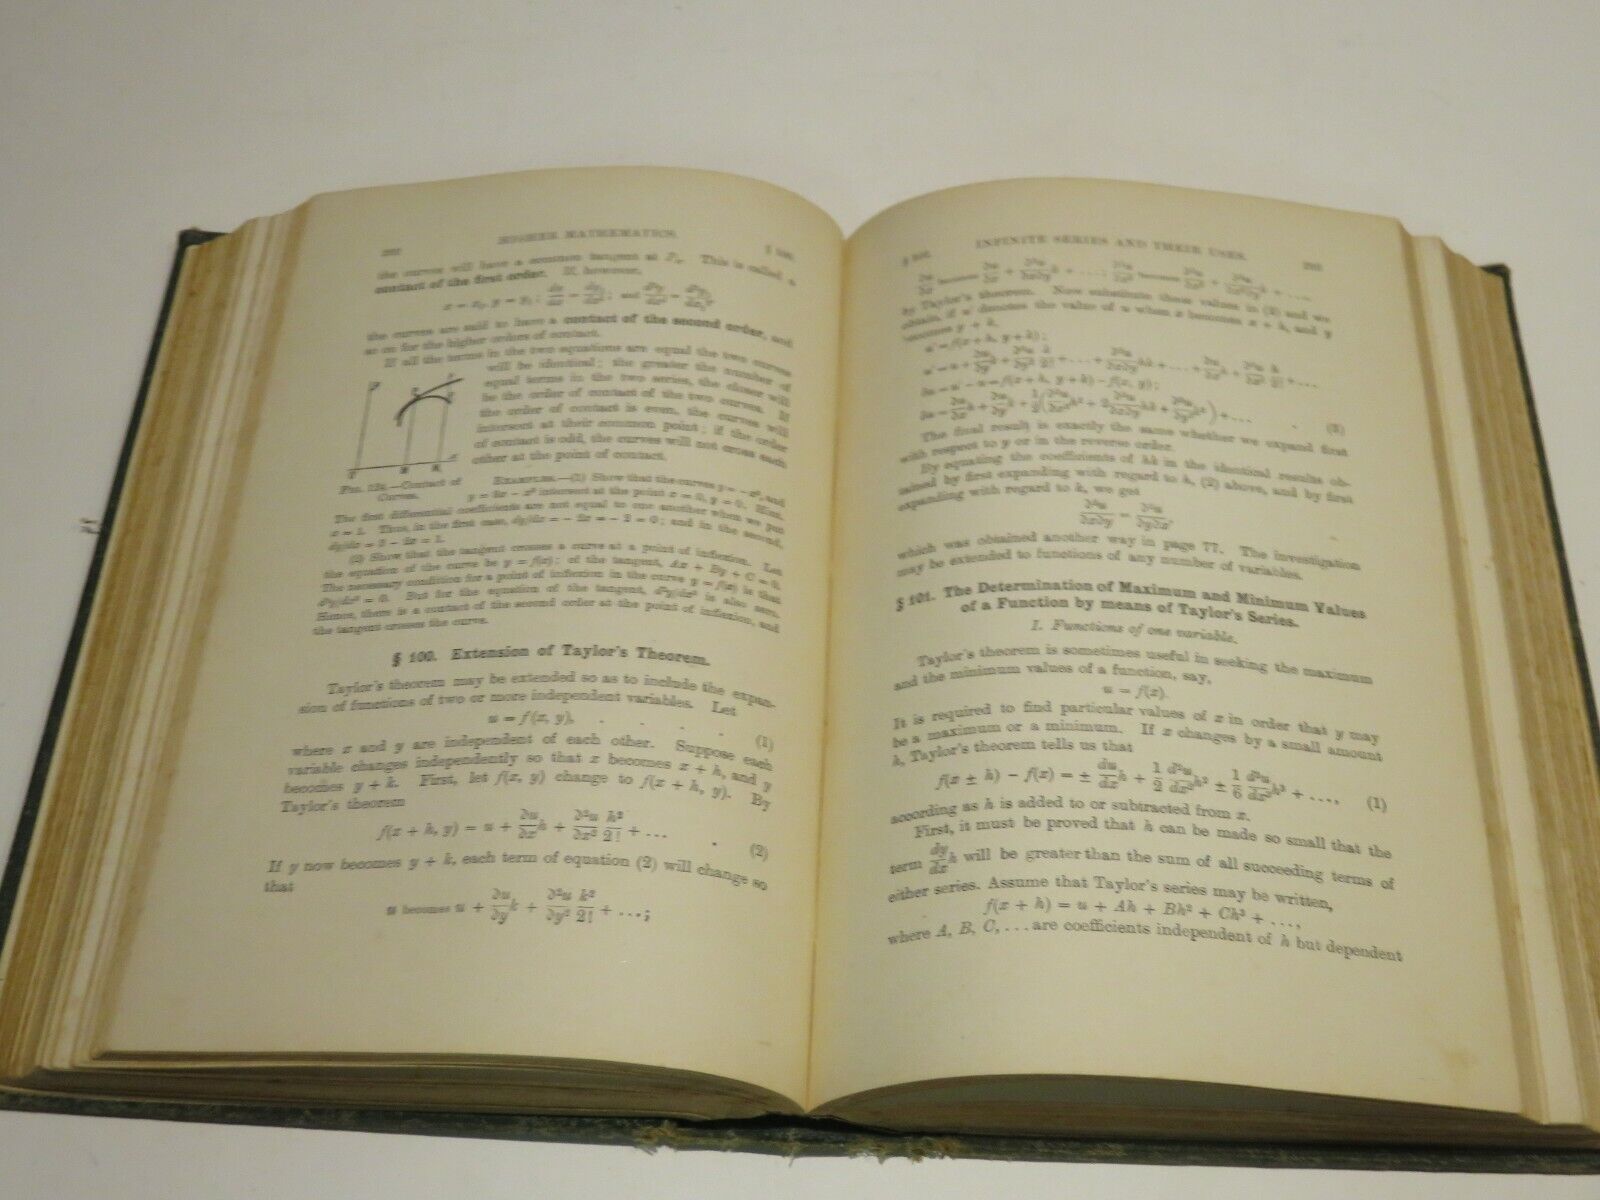 HIGHER MATHEMATICS.
§ 100.
the curves will have a common tangent at P₀. This is called a
contact of the first order. If, however,
x = x₁, y = y₁; and
the curves are said to have a contact of the second order, and
so on for the higher orders of contact.
If all the terms in the two equations are equal the two curves
will be identical; the greater the number of
equal terms in the two series, the closer will
be the order of contact of the two curves. If
the order of contact is even, the curves will
intersect at their common point; if the order
of contact is odd, the curves will not cross each
other at the point of contact.
Fig. 124.—Contact of
Curves.
EXAMPLES.—(1) Show that the curves y = - x², and
y = 3x - x² intersect at the point x = 0, y = 0. Hint.
The first differential coefficients are not equal to one another when we put
x = 1. Thus, in the first case, dy/dx = - 2x = - 2 = 0; and in the second,
dy/dx = 3 - 2x = 1.
(2) Show that the tangent crosses a curve at a point of inflexion. Let
the equation of the curve be y = f(x); of the tangent, Ax + By + C = 0.
The necessary condition for a point of inflexion in the curve y = f(x) is that
d²y/dx² = 0. But for the equation of the tangent, d²y/dx² is also zero.
Hence, there is a contact of the second order at the point of inflexion, and
the tangent crosses the curve.
§ 100. Extension of Taylor's Theorem.
Taylor's theorem may be extended so as to include the expan-
sion of functions of two or more independent variables. Let
u = f(x, y), . . . (1)
where x and y are independent of each other. Suppose each
variable changes independently so that x becomes x + h, and y
becomes y + k. First, let f(x, y) change to f(x + h, y). By
Taylor's theorem
f(x + h, y) = u + ∂u/∂x h + ∂²u/∂x² h²/2! + ... . (2)
If y now becomes y + k, each term of equation (2) will change so
that
u becomes u + ∂u/∂y k + ∂²u/∂y² k²/2! + ...;
§ 100.
INFINITE SERIES AND THEIR USES.
by Taylor's theorem. Now substitute these values in (2) and we
obtain, if u' denotes the value of u when x becomes x + h, and y
becomes y + k,
u' = f(x + h, y + k);
δu = u' - u = f(x + h, y + k) - f(x, y);
δu = ∂u/∂x h + ∂u/∂y k + 1/2(∂²u/∂x² h² + 2 ∂²u/∂x∂y hk + ∂²u/∂y² k²) + ... . (3)
The final result is exactly the same whether we expand first
with respect to y or in the reverse order.
By equating the coefficients of hk in the identical results ob-
tained by first expanding with regard to h, (2) above, and by first
expanding with regard to k, we get
∂²u/∂x∂y = ∂²u/∂y∂x,
which was obtained another way in page 77. The investigation
may be extended to functions of any number of variables.
§ 101. The Determination of Maximum and Minimum Values
of a Function by means of Taylor's Series.
I. Functions of one variable.
Taylor's theorem is sometimes useful in seeking the maximum
and the minimum values of a function, say,
u = f(x).
It is required to find particular values of x in order that y may
be a maximum or a minimum. If x changes by a small amount
h, Taylor's theorem tells us that
f(x ± h) - f(x) = ± du/dx h + 1/2 d²u/dx² h² ± 1/6 d³u/dx³ h³ + ..., (1)
according as h is added to or subtracted from x.
First, it must be proved that h can be made so small that the
term dy/dx h will be greater than the sum of all succeeding terms of
either series. Assume that Taylor's series may be written,
f(x + h) = u + Ah + Bh² + Ch³ + ...,
where A, B, C, ... are coefficients independent of h but dependent